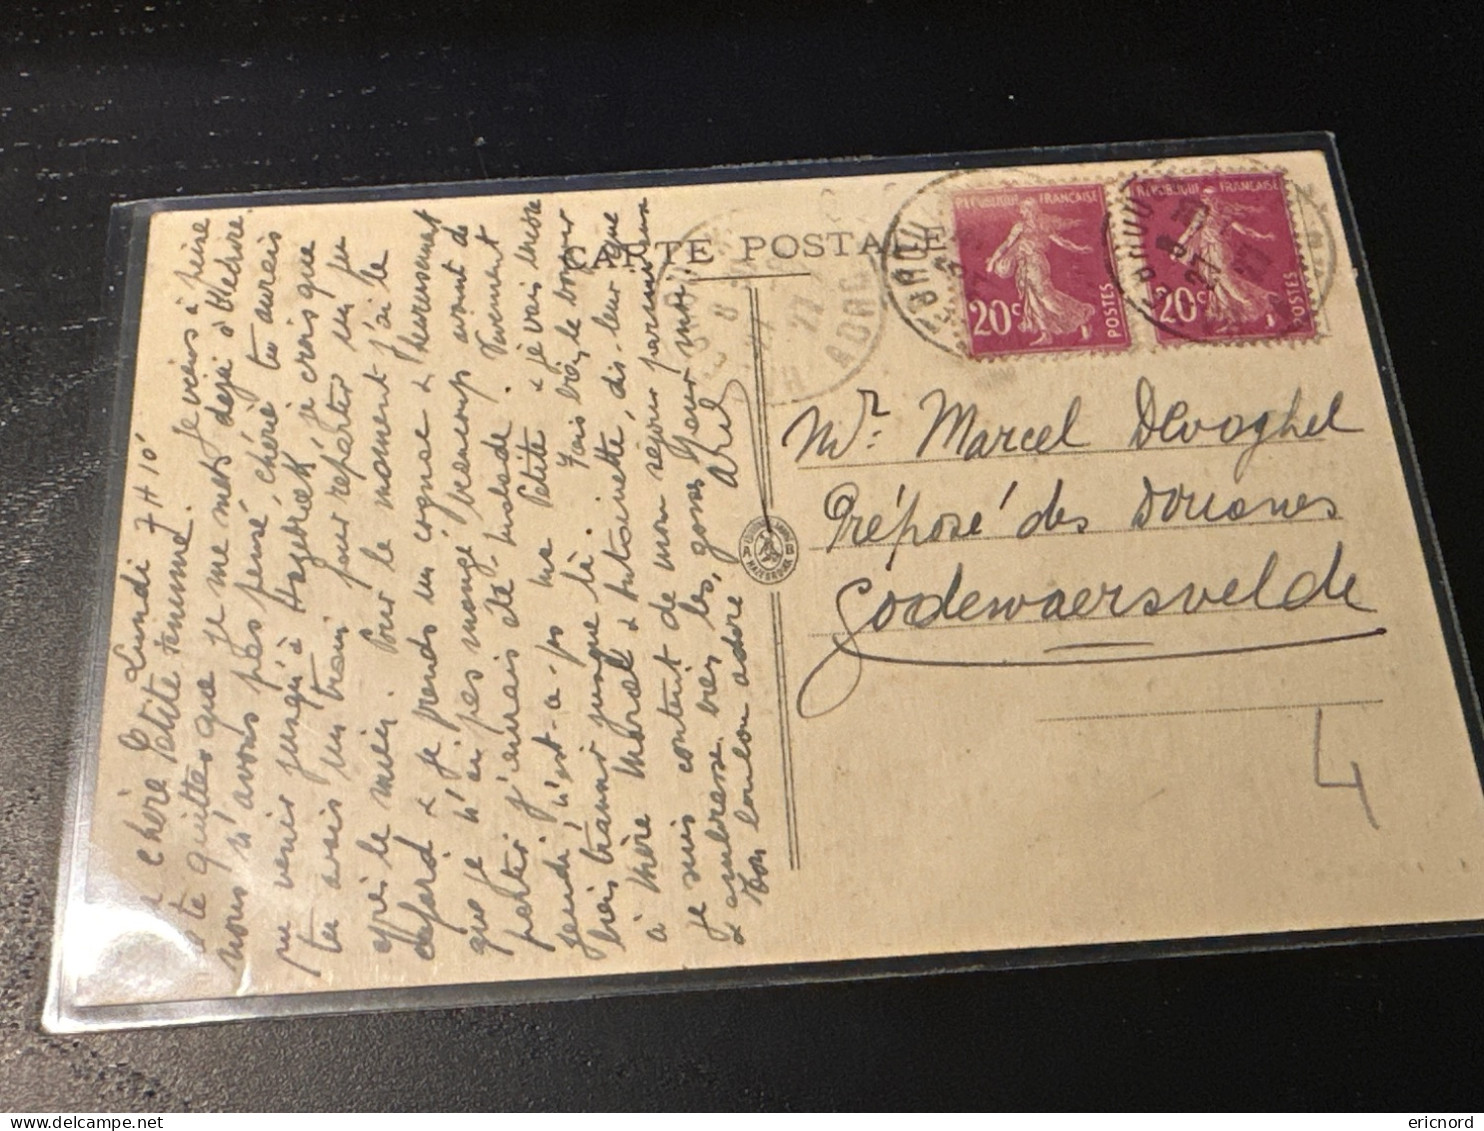 CARTE POSTALE
REPUBLIQUE FRANÇAISE
20c
POSTES
REPUBLIQUE FRANÇAISE
20c
POSTES
Mr. Marcel Devoghel
Préposé des Douanes
Godewaersvelde
4
Lundi 7H10'
chère Petite femme. Je viens à peine
te quitter que je me mets déjà à t'écrire.
nous n'avons pas pensé, chérie tu aurais
pu venir jusqu'à Hazebrouck je crois que
tu avais un train pour repartir un peu
après le mien. Pour le moment j'ai le
cafard & je prends un cognac & heureusement
que je n'ai pas mangé beaucoup avant de
partir j'aurais été malade. Vivement
jeudi n'est-ce-pas ma Petite & je vais être
bien jusque là. Fais bien le bonjour
à Mère Marcel & Antoinette, dis-leur que
je suis content de mon séjour parmi eux
& embrasse bien les gosses pour moi
Ton loulou adoré Abel
HAZEBROUCK
ericnord